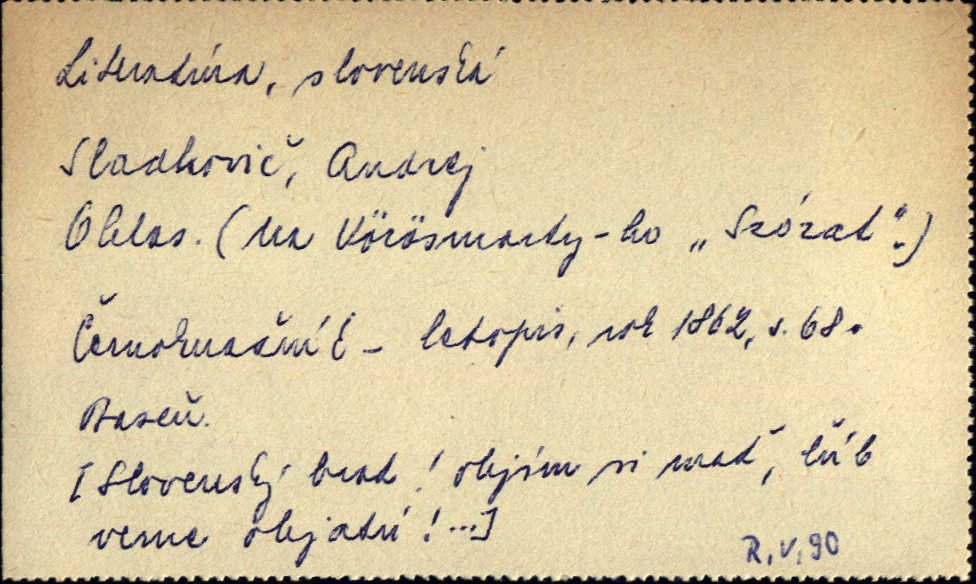 Literatúra, slovenská
Sládkovič, Andrej
Ohlas. (Na Vörösmarty-ho „Szózat".)
letopis, rok 1862, s. 68.
Báseň.
[Slovenský brat! objím si mať, ľúb
verne objatú!...]
R.V.90